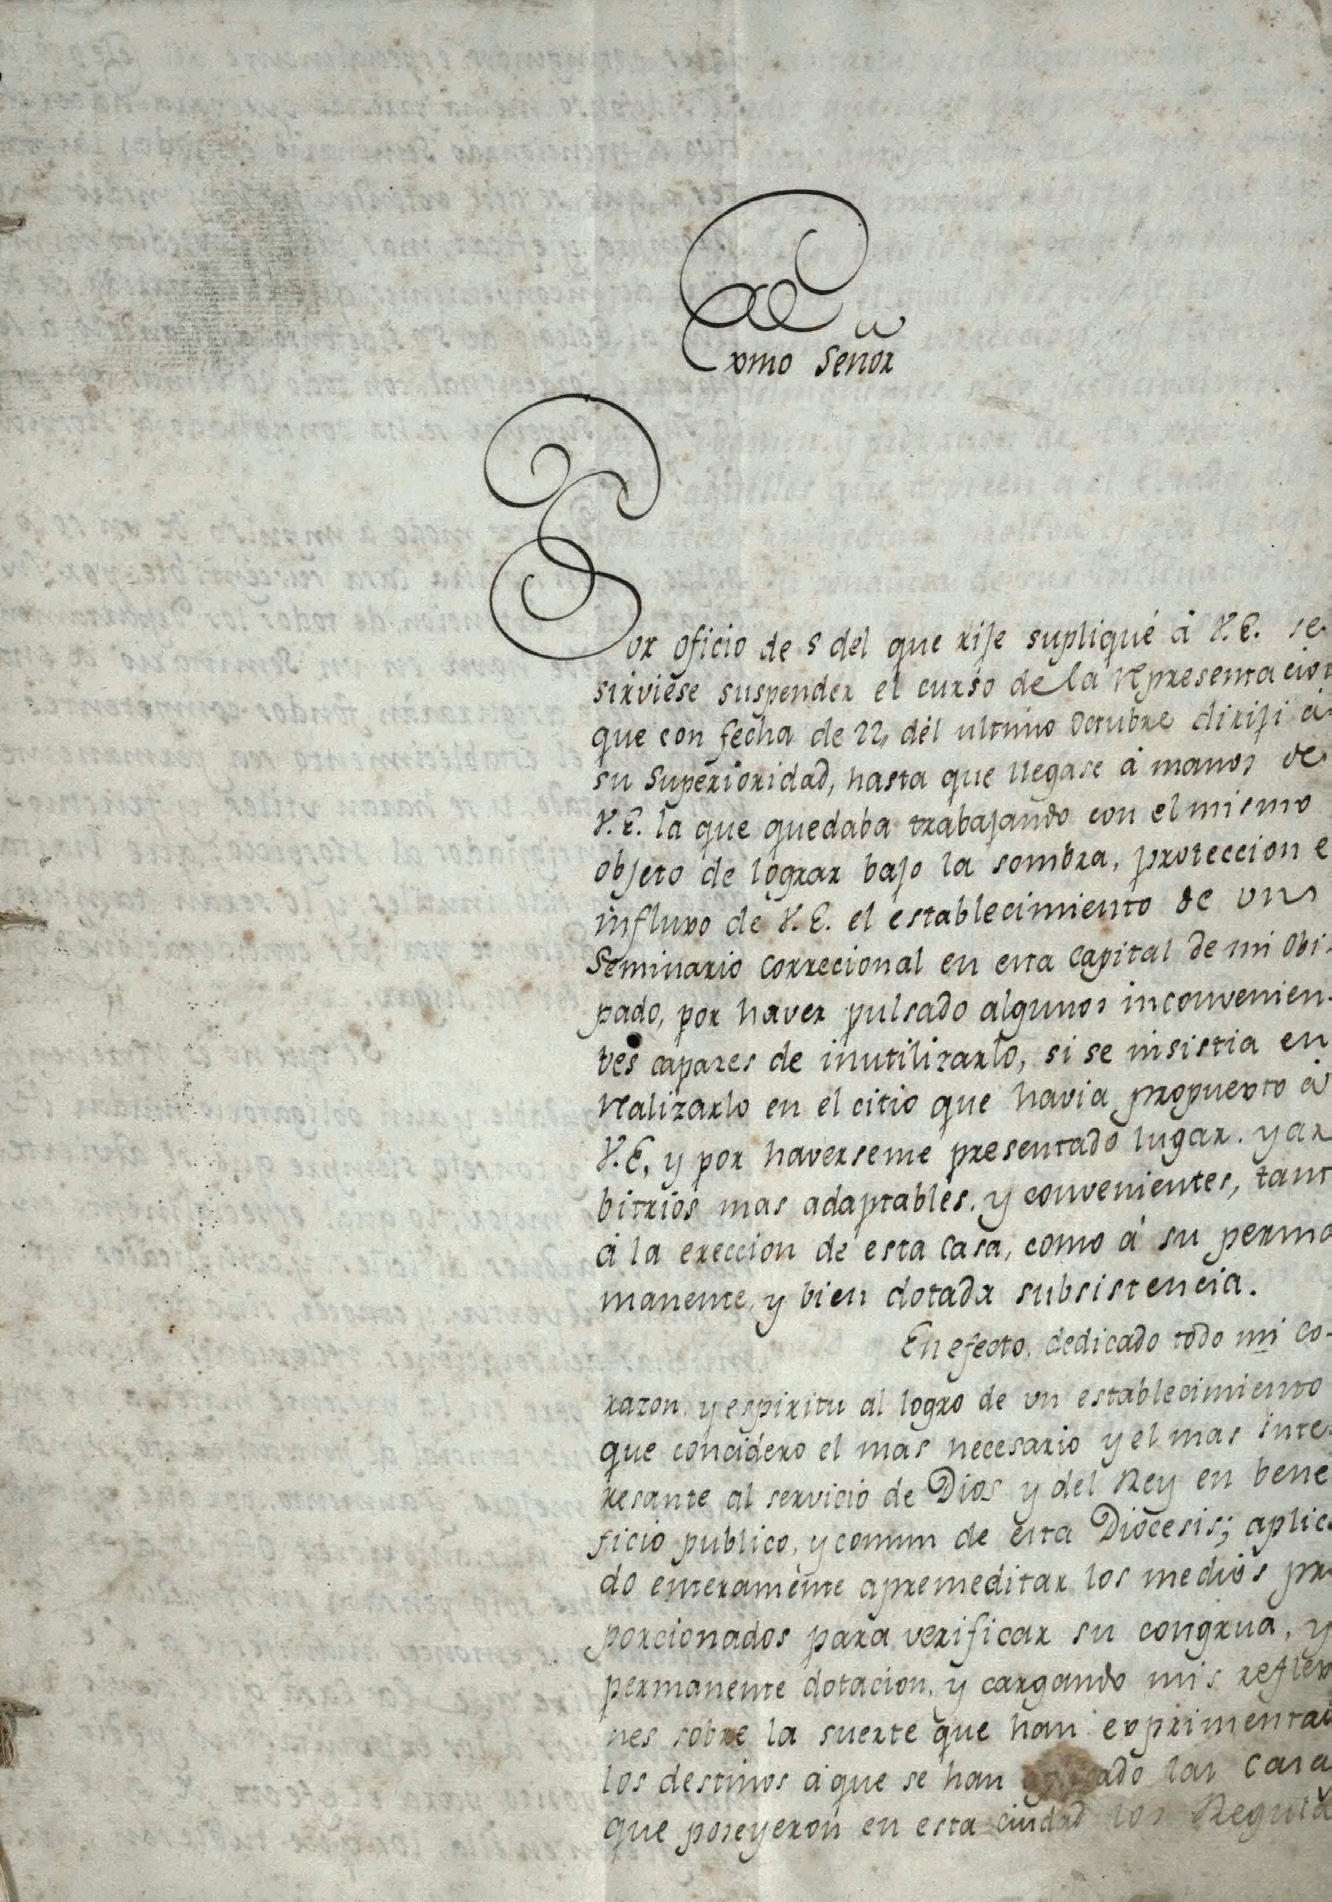 Exmo Señor
Por oficio de 5 del que rije supliqué á V.E. se
sirviese suspender el curso de la Representacion
que con fecha de 22, del ultimo Octubre dirijí á
su Superioridad, hasta que llegase á manos de
V.E. la que quedaba trabajando con el mismo
objeto de lograr bajo la sombra, proteccion e
influxo de V.E. el establecimiento de un
Seminario Correcional en esta Capital de mi Obi-
pado, por haver pulsado algunos inconvenien-
tes capazes de inutilizarlo, si se insistia en
realizarlo en el citio que havia propuesto á
V.E, y por haverseme presentado lugar. y ar
bitrios mas adaptables. y convenientes, tant
á la ereccion de esta Casa, como á su perma
manente, y bien dotada subsistencia.
En efecto, dedicado todo mi co-
razon, y espiritu al logro de un establecimiento
que concidero el mas necesario y el mas inte-
resante al servicio de Dios y del Rey en bene
ficio publico, y comun de esta Diocesis; aplica
do enteramente apremeditar los medios pro
porcionados para verificar su congrua, y
permanente dotacion, y cargando mis reflexio
nes sobre la suerte que han exprimentad
los destinos á que se han las Casa
que poseyeron en esta ciudad los Regula